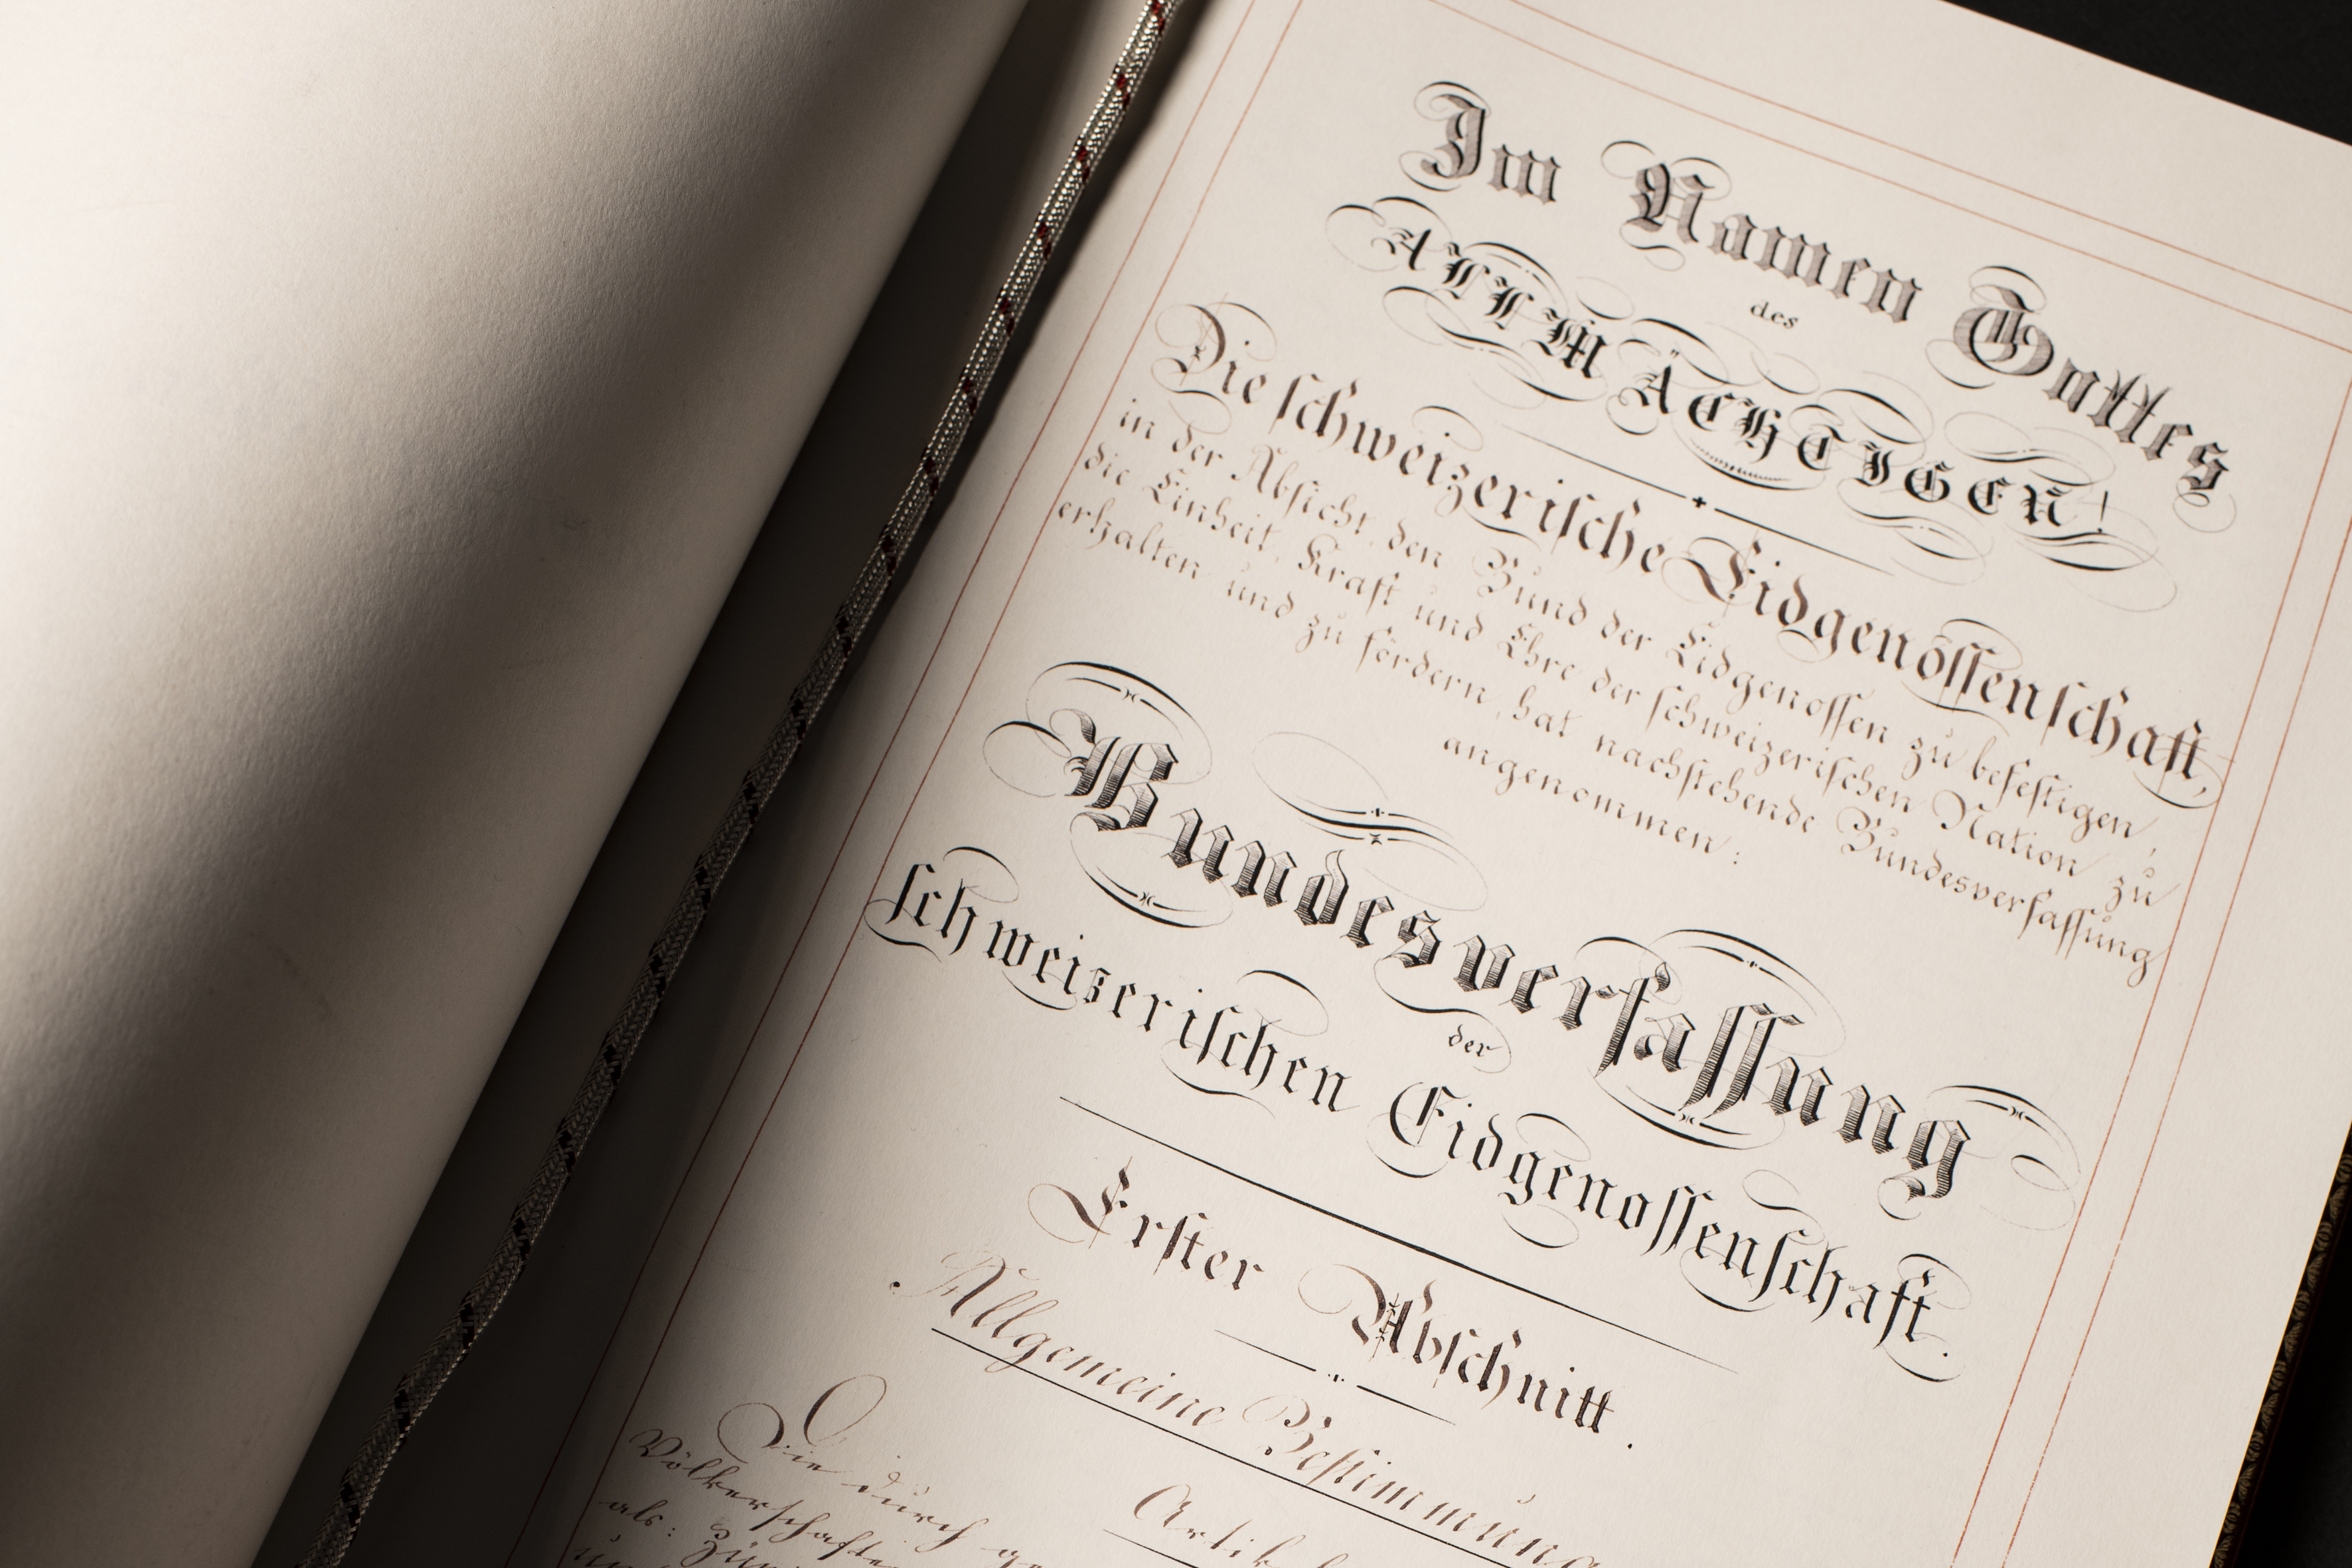 Im Namen Gottes
des
ALLMÄCHTIGEN!
Die schweizerische Eidgenossenschaft,
in der Absicht, den Bund der Eidgenossen zu befestigen,
die Einheit, Kraft und Ehre der schweizerischen Nation zu
erhalten und zu fördern, hat nachstehende Bundesverfassung
angenommen:
Bundesverfassung
der
schweizerischen Eidgenossenschaft.
Erster Abschnitt.
Allgemeine Bestimmung
Artik
Die durch
Völkerschaften
als: Zür